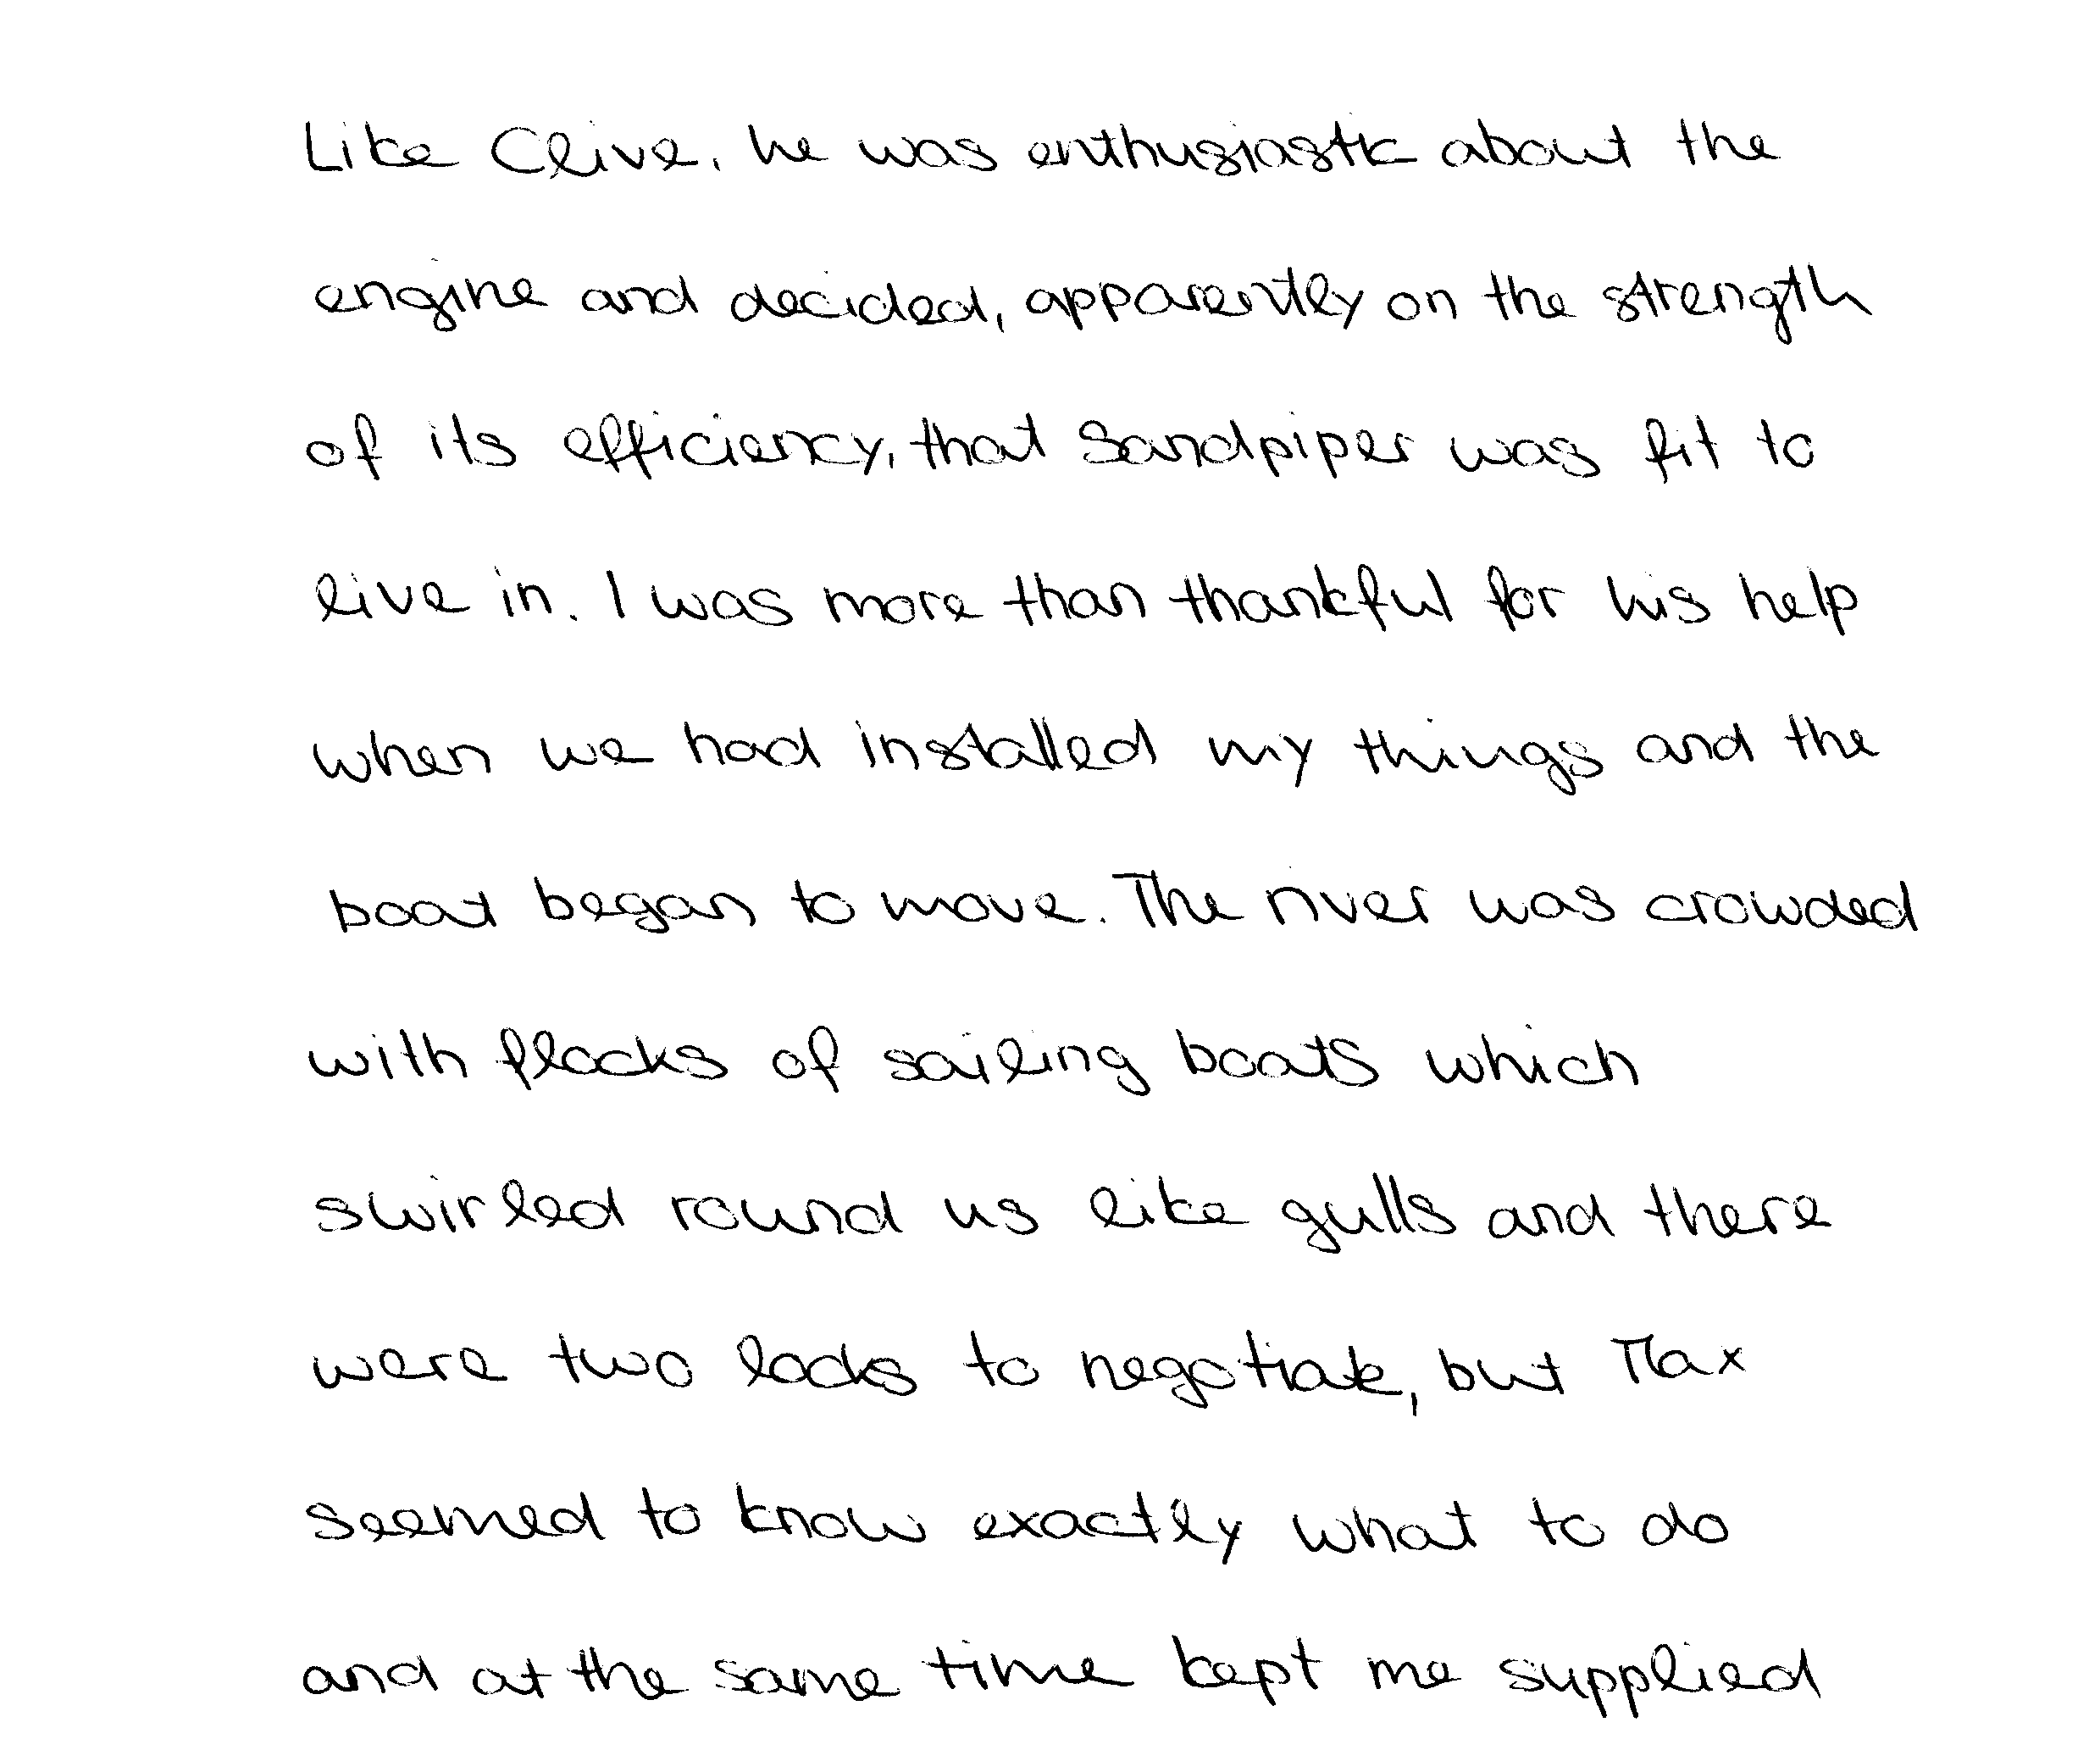 Like Clive, he was enthusiastic about the
engine and decided, apparently on the strength
of its efficiency, that Sandpiper was fit to
live in. I was more than thankful for his help
when we had installed my things and the
boat began to move. The river was crowded
with flocks of sailing boats which
swirled round us like gulls and there
were two locks to negotiate, but Max
seemed to know exactly what to do
and at the same time kept me supplied